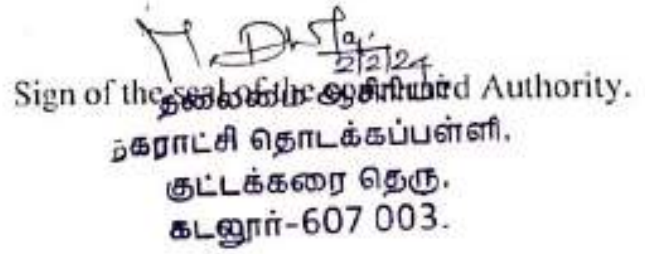 2/2/24
Sign of the seal of the Authority.
தலைமை ஆசிரியர்
நகராட்சி தொடக்கப்பள்ளி.
குட்டக்கரை தெரு.
கடலூர்-607 003.